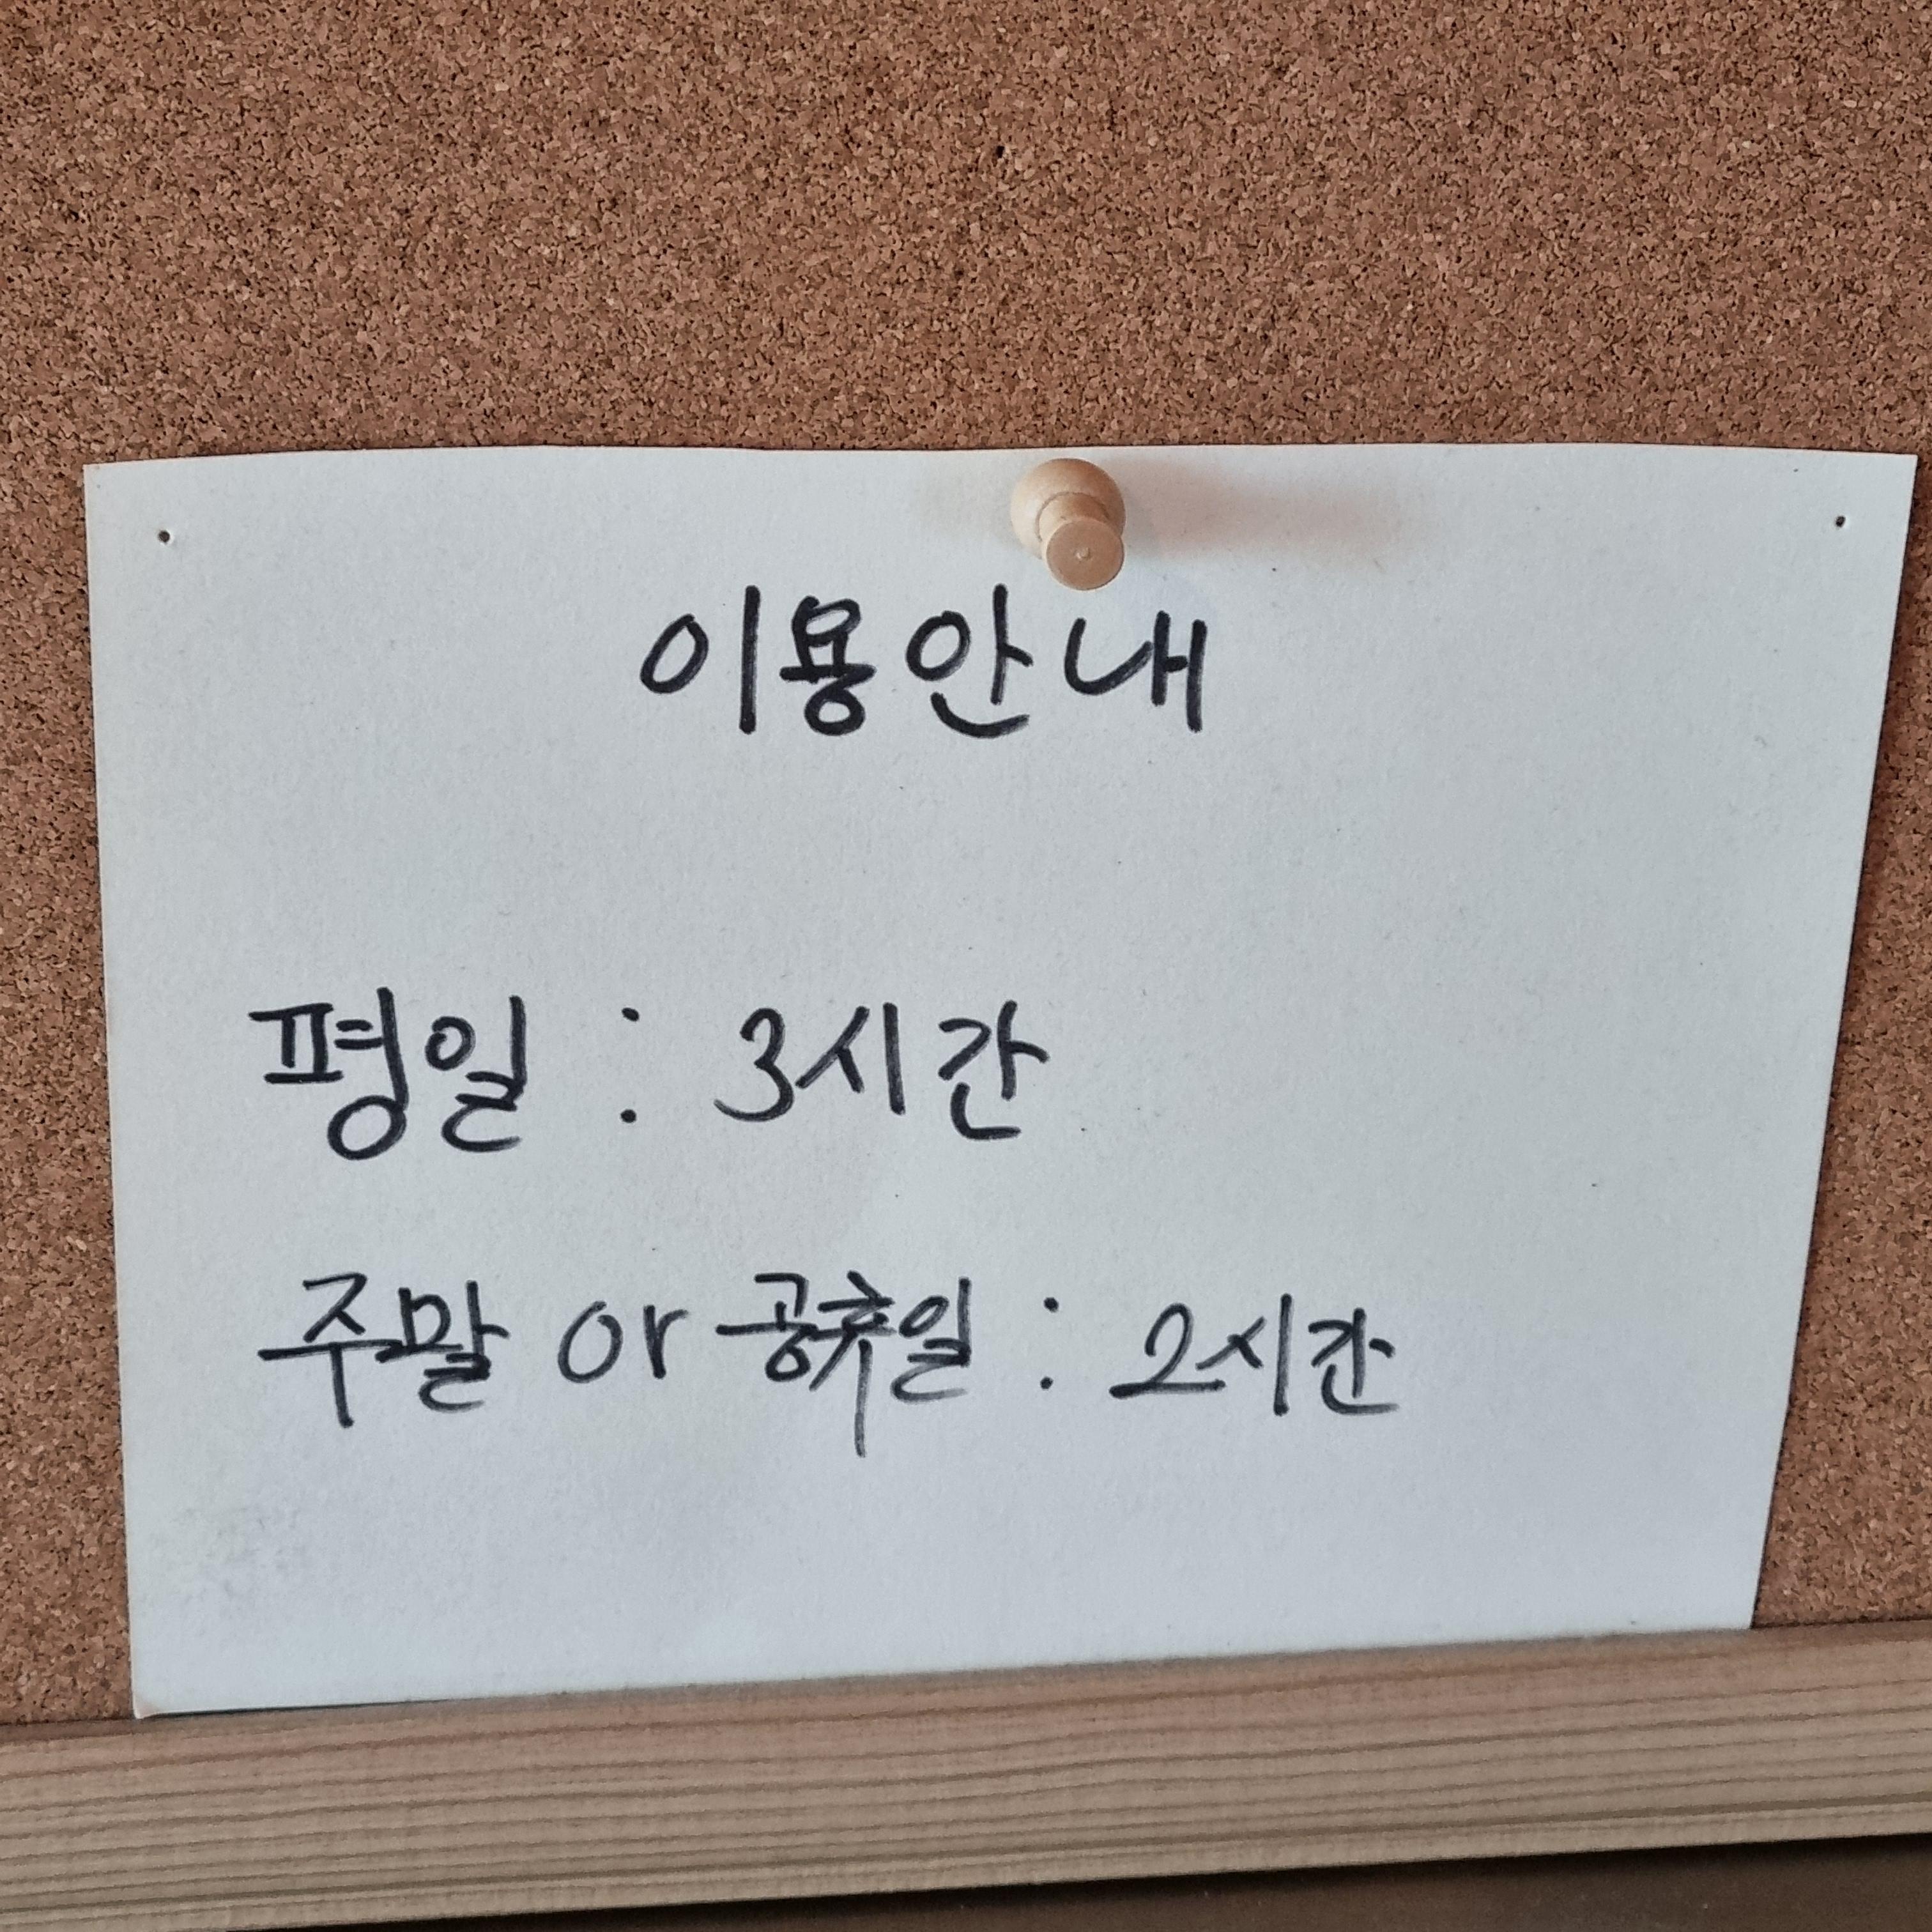 이용안내
평일 : 3시간
주말 or 공휴일 : 2시간